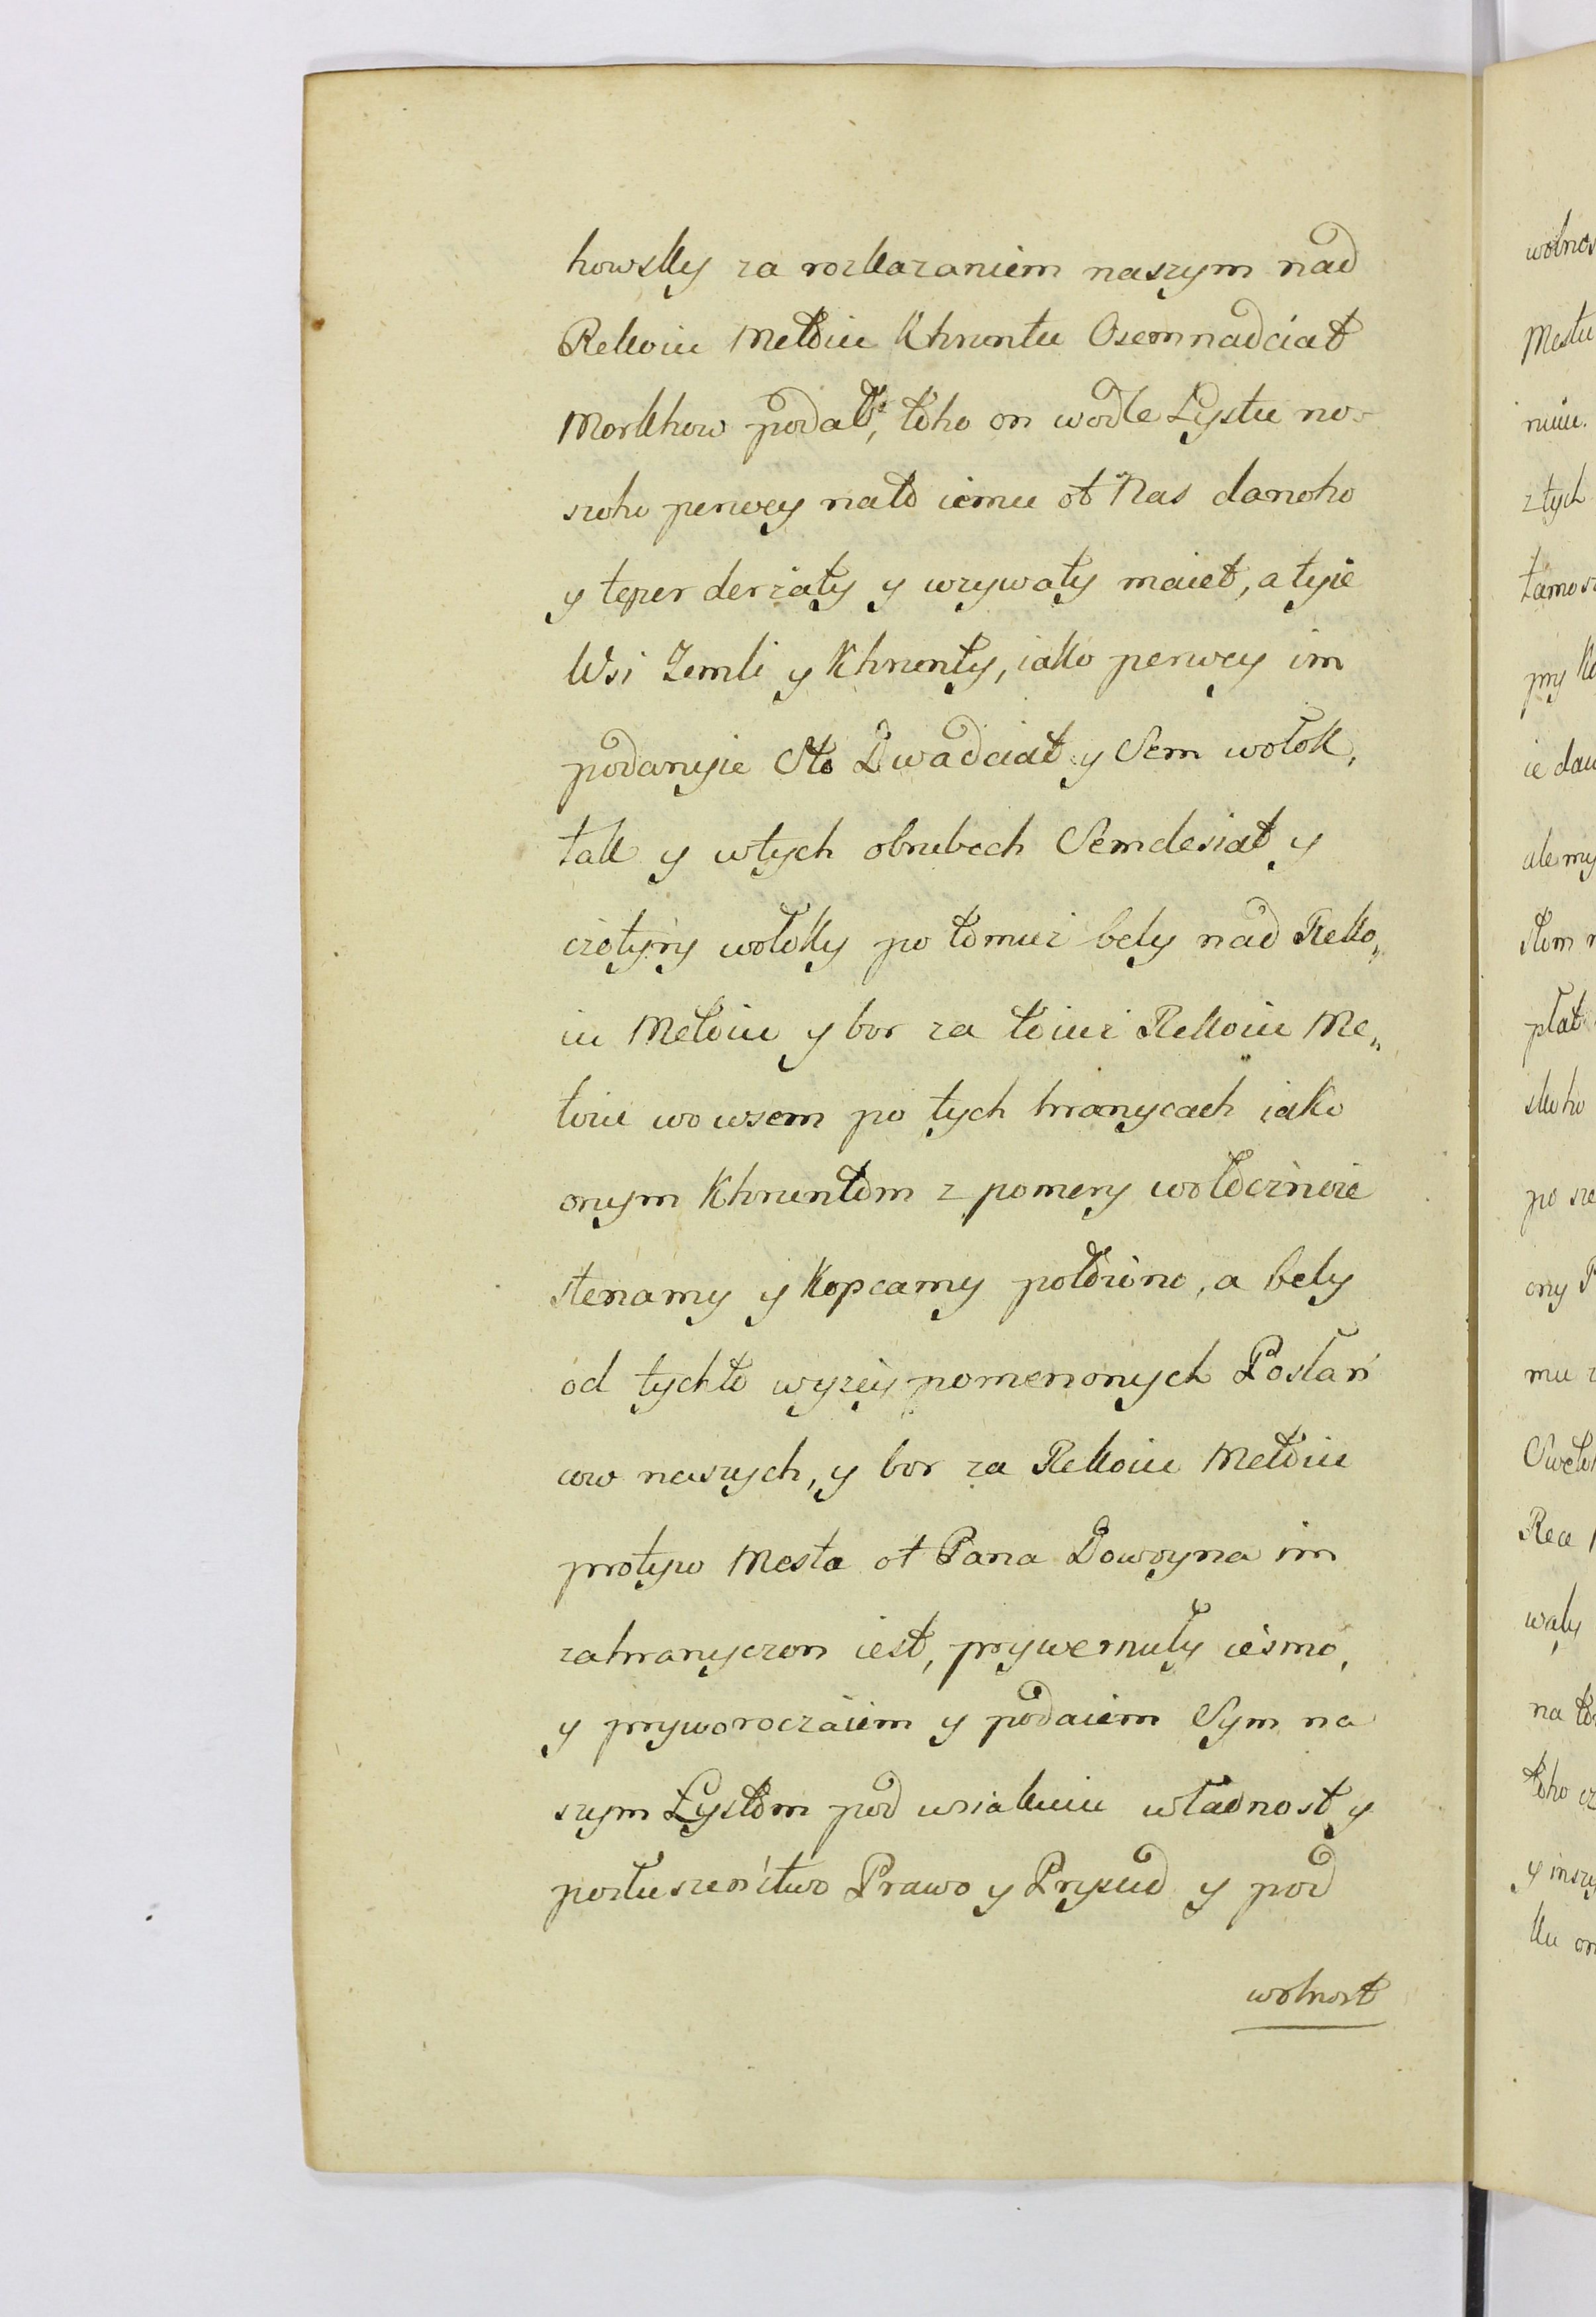 howsky za rozkazaniem naszym nad
Rekoiu Metoiu Khruntu Osemnadciat
Morkhow podał, toho on wodle Lystu na-
szoho perwey nato iemu ot Nas danoho
y teper derżaty y wżywaty maiet, a tyie
Wsi Zemli y Khrunty, iako perwey im
podanyie Sto Dwadciat y Sem wołok,
tak y wtych obrubech Semdesiat y
czotyry wołoky po tomuż bely nad Reko„
iu Metoiu y bor za toiuż Rekoiu Me„
toiu wo wsem po tych hranycach iako
onym Khruntom z pomery wołocznoie
stenamy y Kopcamy położono, a bely
od tychto wyżey pomenonych Posłań
cow naszych, y bor za Rekoiu Metoiu
protyw Mesta ot Pana Dowoyna im
zahranyczon iest, prywernuły iesmo,
y pryworoczaiem y podaiem Sym na
szym Lystom pod wsiakuiu władnost y
posłuszeństwo Prawo y Prysud y pod
wolnost
wolnos
Mestu
niuiu.
z tych
tamosz
pry Ko
ie daw
ale my
stom n
płat
skoho
po sze
ony P
mu z
Rece
wały
na to
toho cz
y inszy
ku on